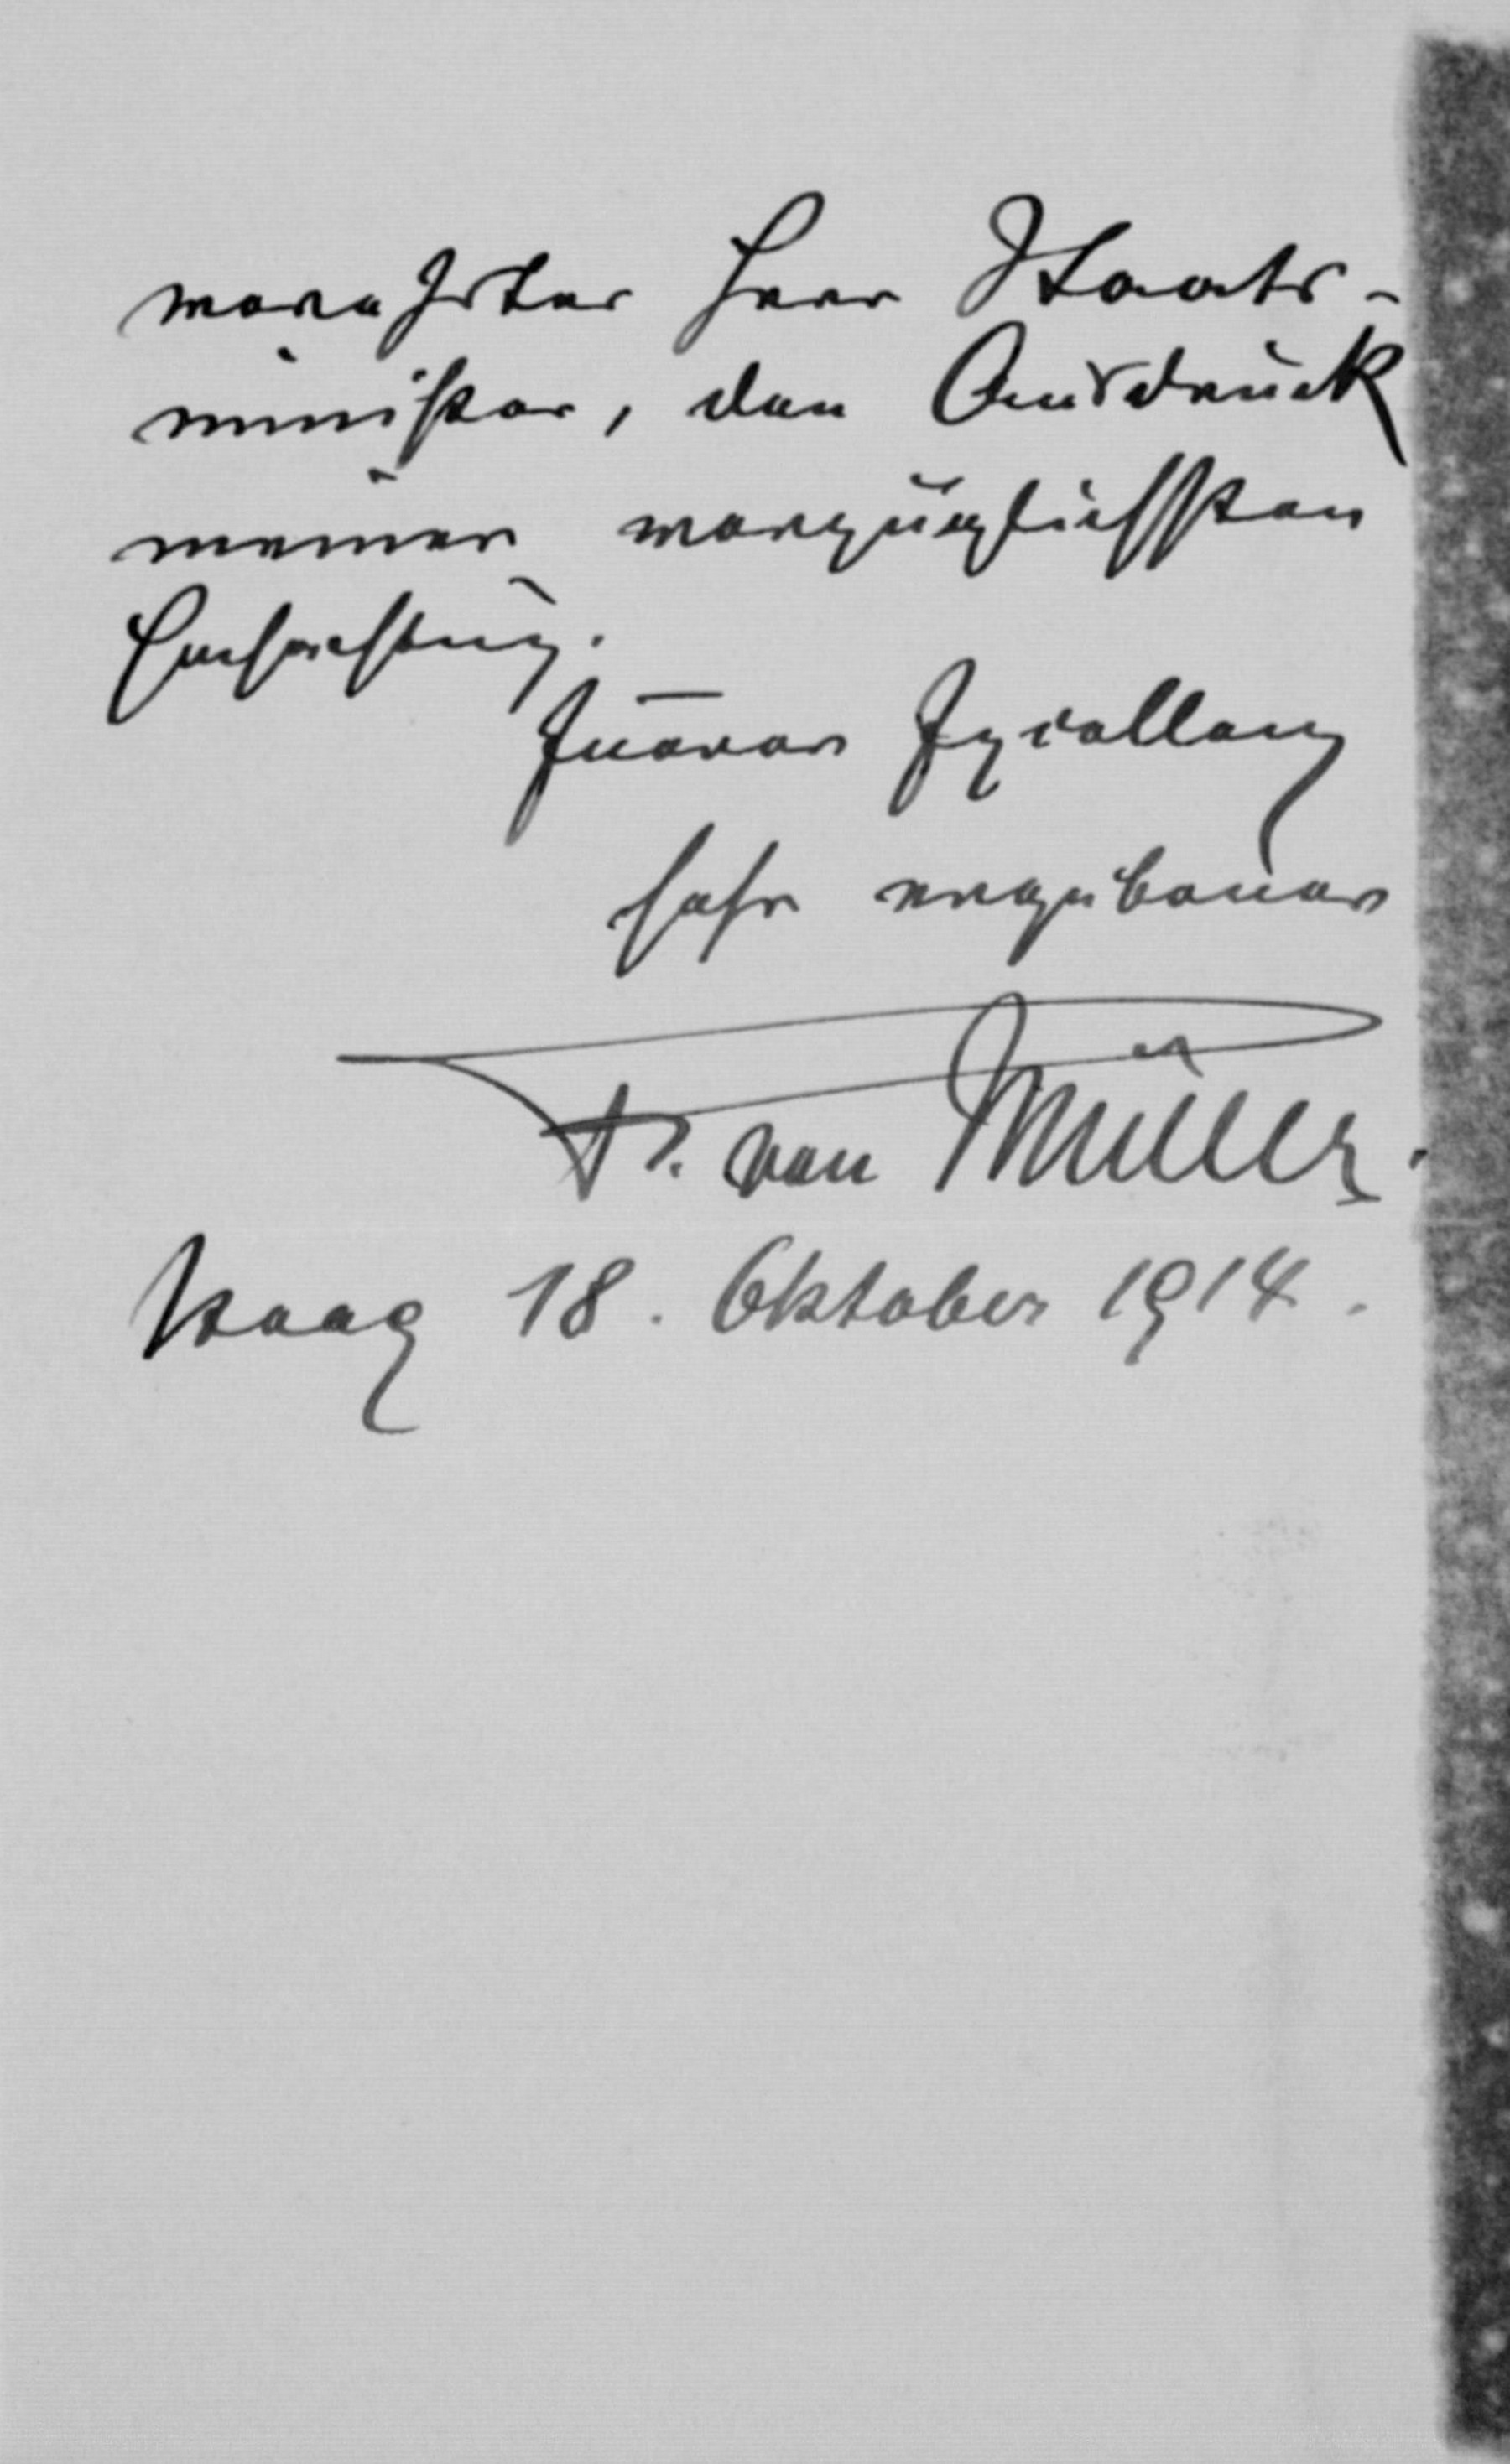 verehrter Herr Staats-
minister, den Ausdruck
meiner vorzüglichsten
Hochachtung.
Euerer Excellenz
sehr ergebener
F. von Müller.
Haag 18. Oktober 1914.